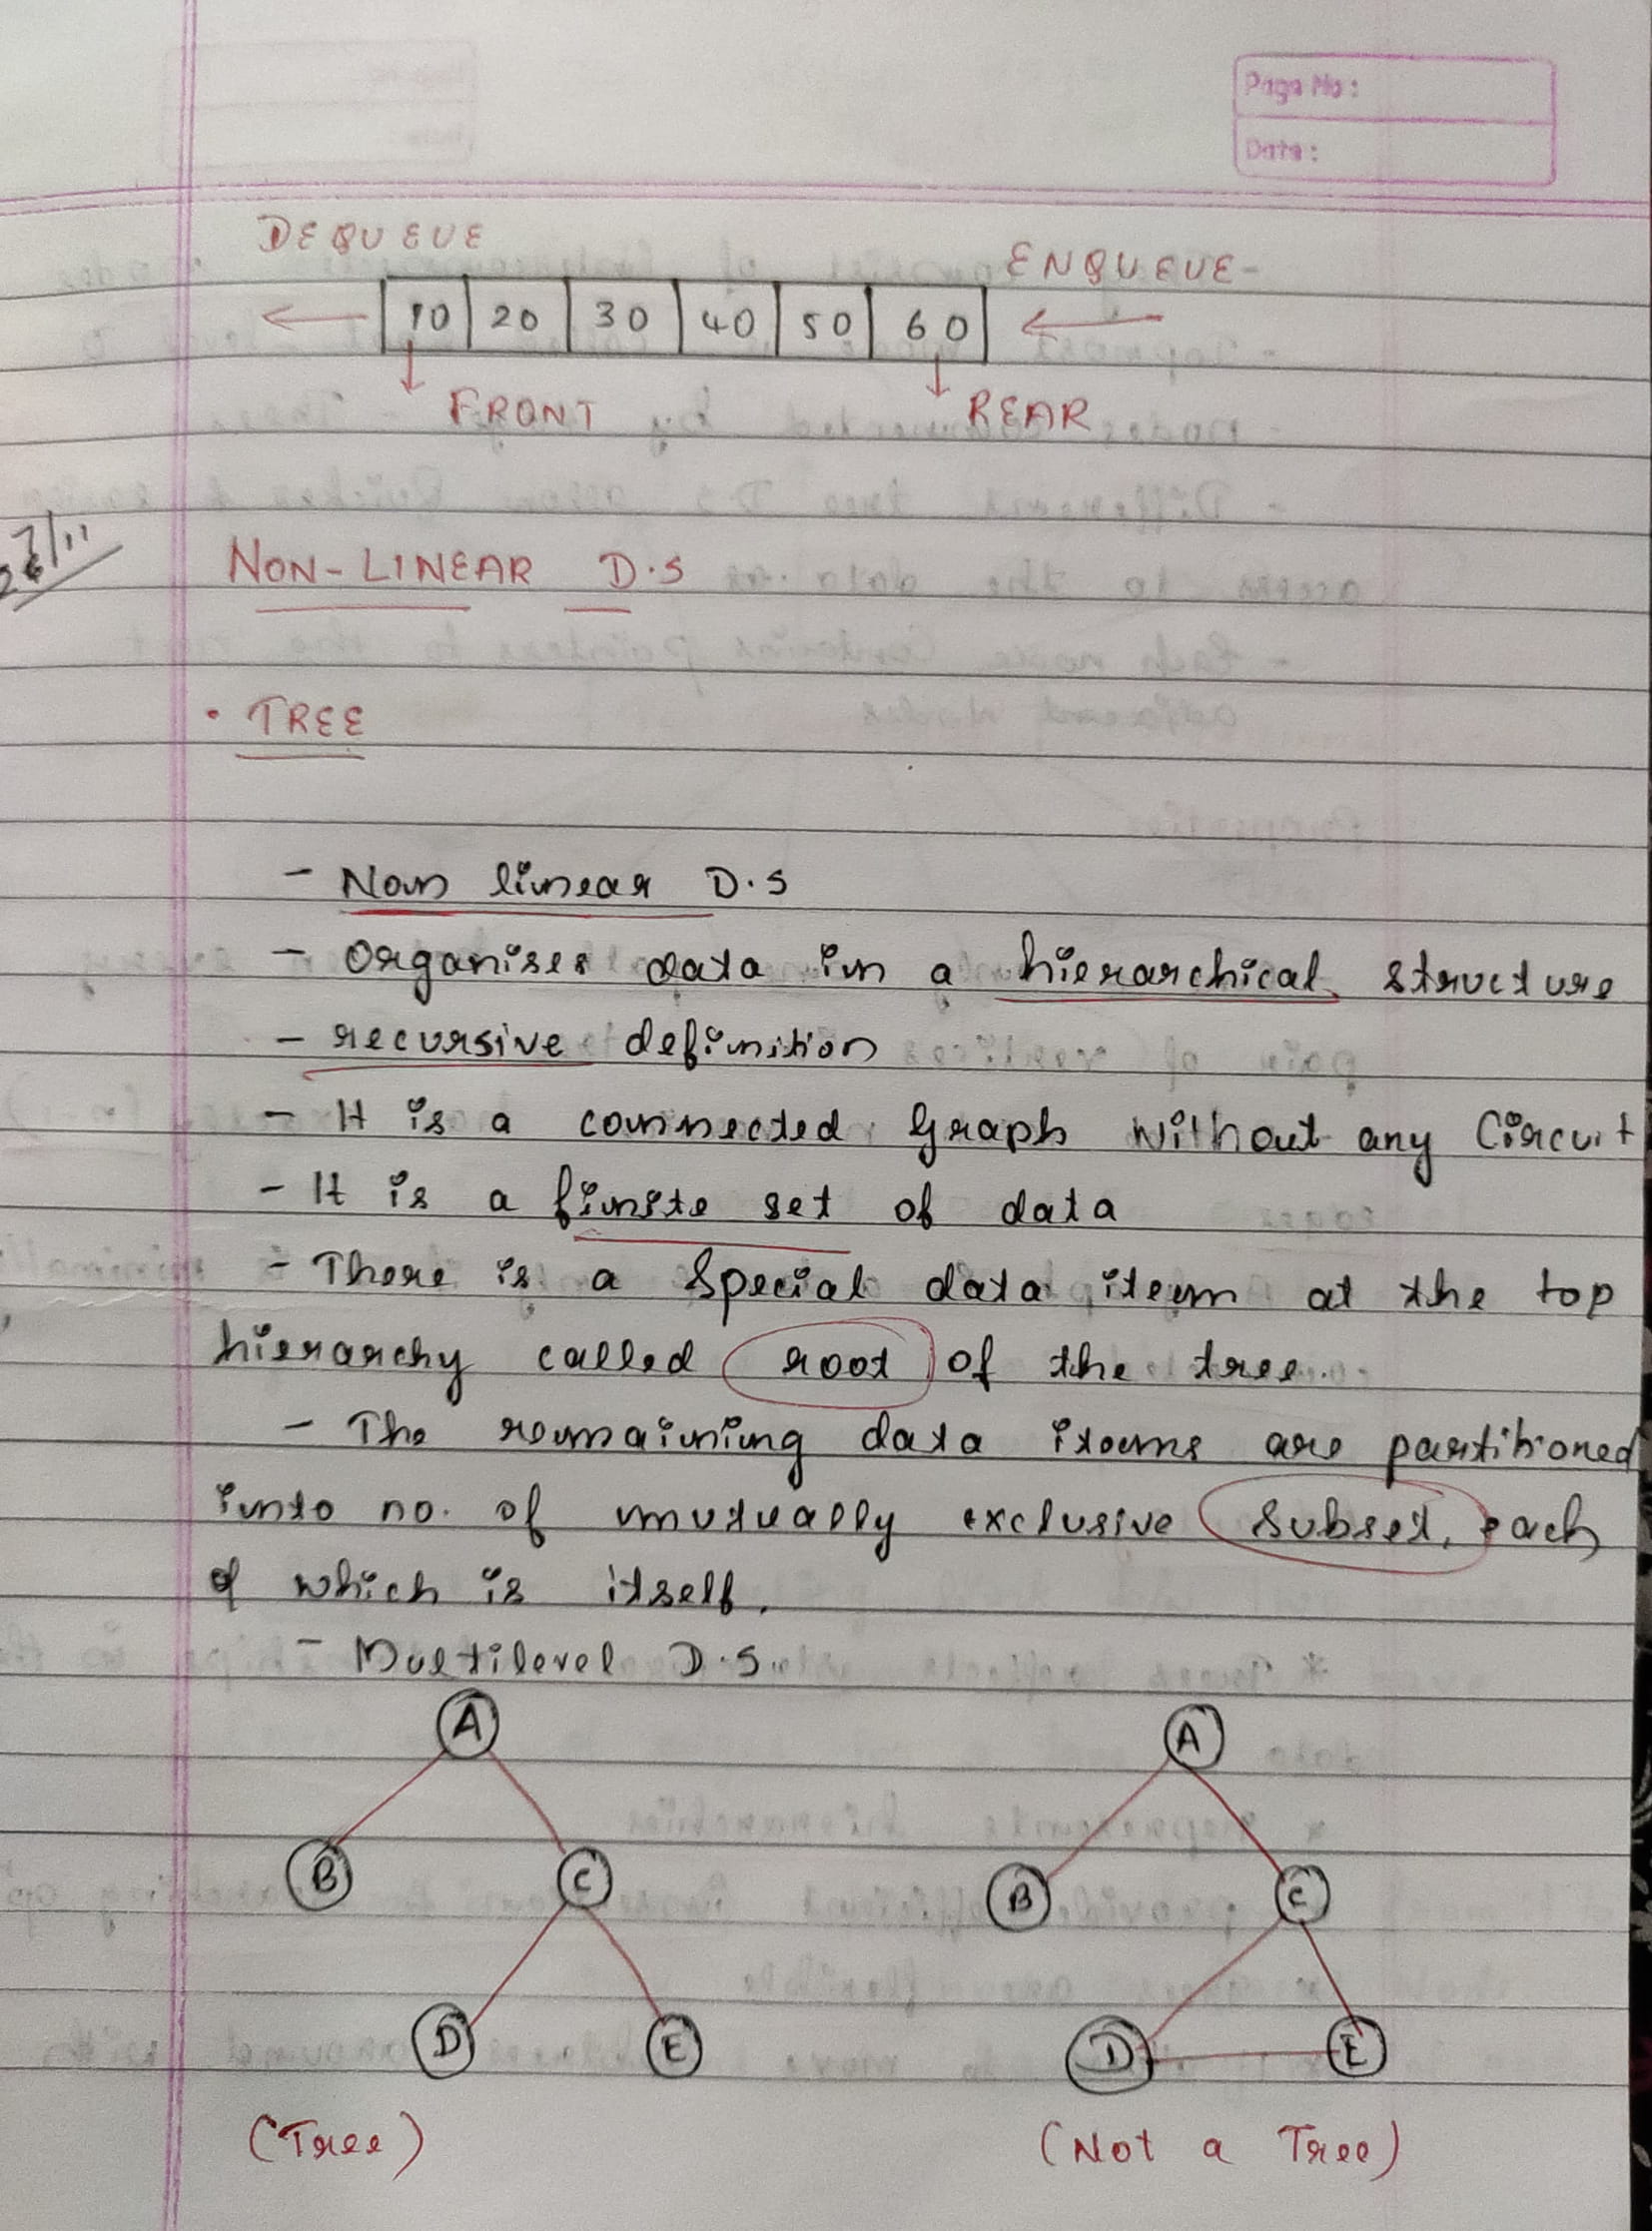 Page No :
Date :
DEQUEUE
ENQUEUE-
10 20 30 40 50 60
FRONT REAR
NON-LINEAR D.S
• TREE
- Non linear D.S
- Organises data in a hierarchical structure
- recursive definition
- It is a connected Graph without any Circuit
- It is a finite set of data
- There is a special data item at the top
hierarchy called root of the tree.
- The remaining data items are partitioned
into no. of mutually exclusive subset, each
of which is itself.
- Multilevel D.S.
A A
B C B C
D E D E
(Tree) (Not a Tree)